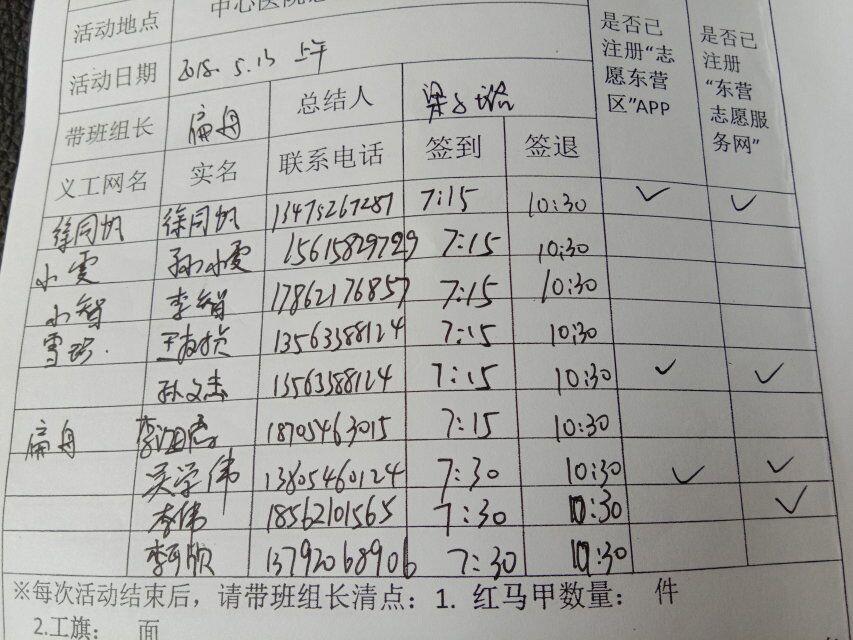 活动地点 中心医院
活动日期 2018.5.13 上午
带班组长 扁舟 总结人 梁
是否已注册“志愿东营区”APP
是否已注册“东营志愿服务网”
义工网名 实名 联系电话 签到 签退
徐同帆 徐同帆 13475267287 7:15 10:30 ✓ ✓
小雯 孙小雯 15615829729 7:15 10:30
小智 李智 17862176857 7:15 10:30
雪 王 13563388124 7:15 10:30
孙文杰 13563388124 7:15 10:30 ✓ ✓
扁舟 李 18705463015 7:15 10:30
吴学伟 13805460124 7:30 10:30 ✓ ✓
李伟 18562101565 7:30 10:30 ✓
李 13792068906 7:30 10:30
※每次活动结束后，请带班组长清点：1. 红马甲数量： 件
2.工旗： 面